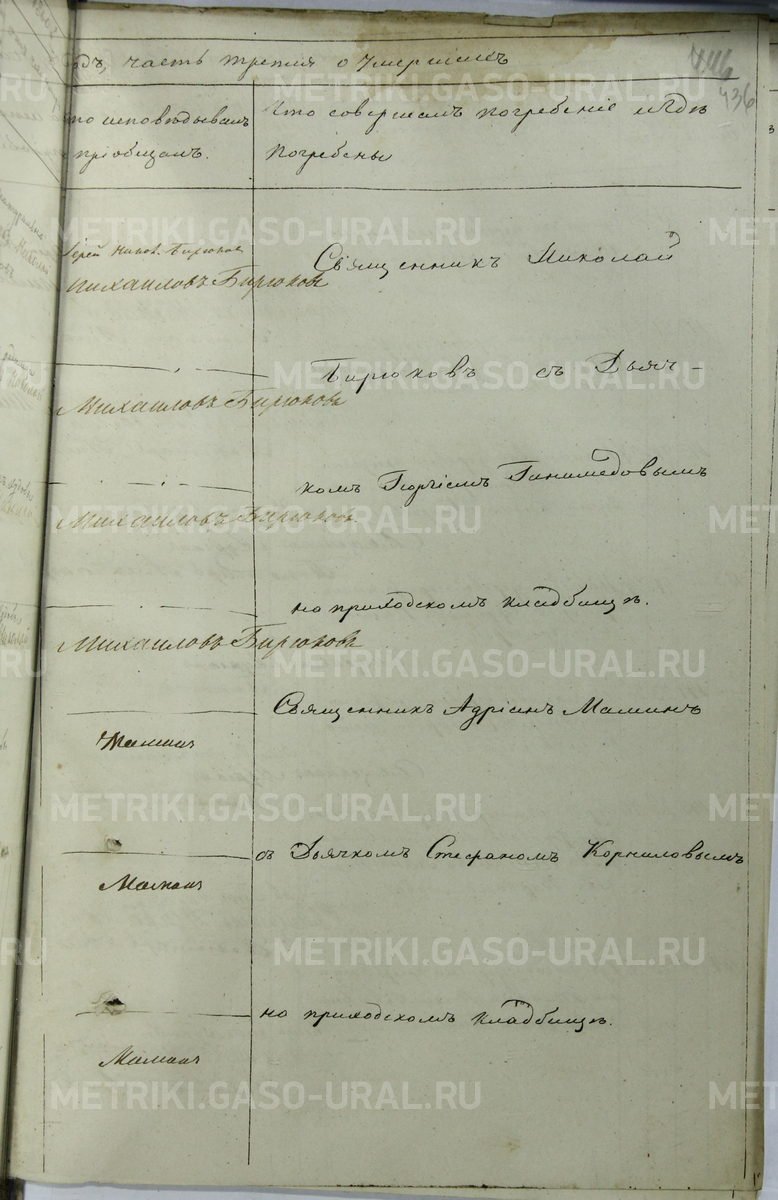 одъ, часть третія о умершихъ
746
436
то исповѣдывалъ
пріобщалъ.
Кто совершалъ погребеніе и гдѣ
погребены
Іерей Никол. Бирюковъ
Михаиловъ Бирюковъ
Священникъ Николай
Бирюковъ съ Дьяч-
Михаиловъ Бирюковъ
комъ Георгіемъ Ганимедовымъ
Михаиловъ Бирюковъ
на приходскомъ кладбищѣ.
Михаиловъ Бирюковъ
Священникъ Адріанъ Маминъ
Маминъ
съ Дьячкомъ Стефаномъ Корниловымъ
Маминъ
на приходскомъ кладбищѣ.
Маминъ
METRIKI.GASO-URAL.RU